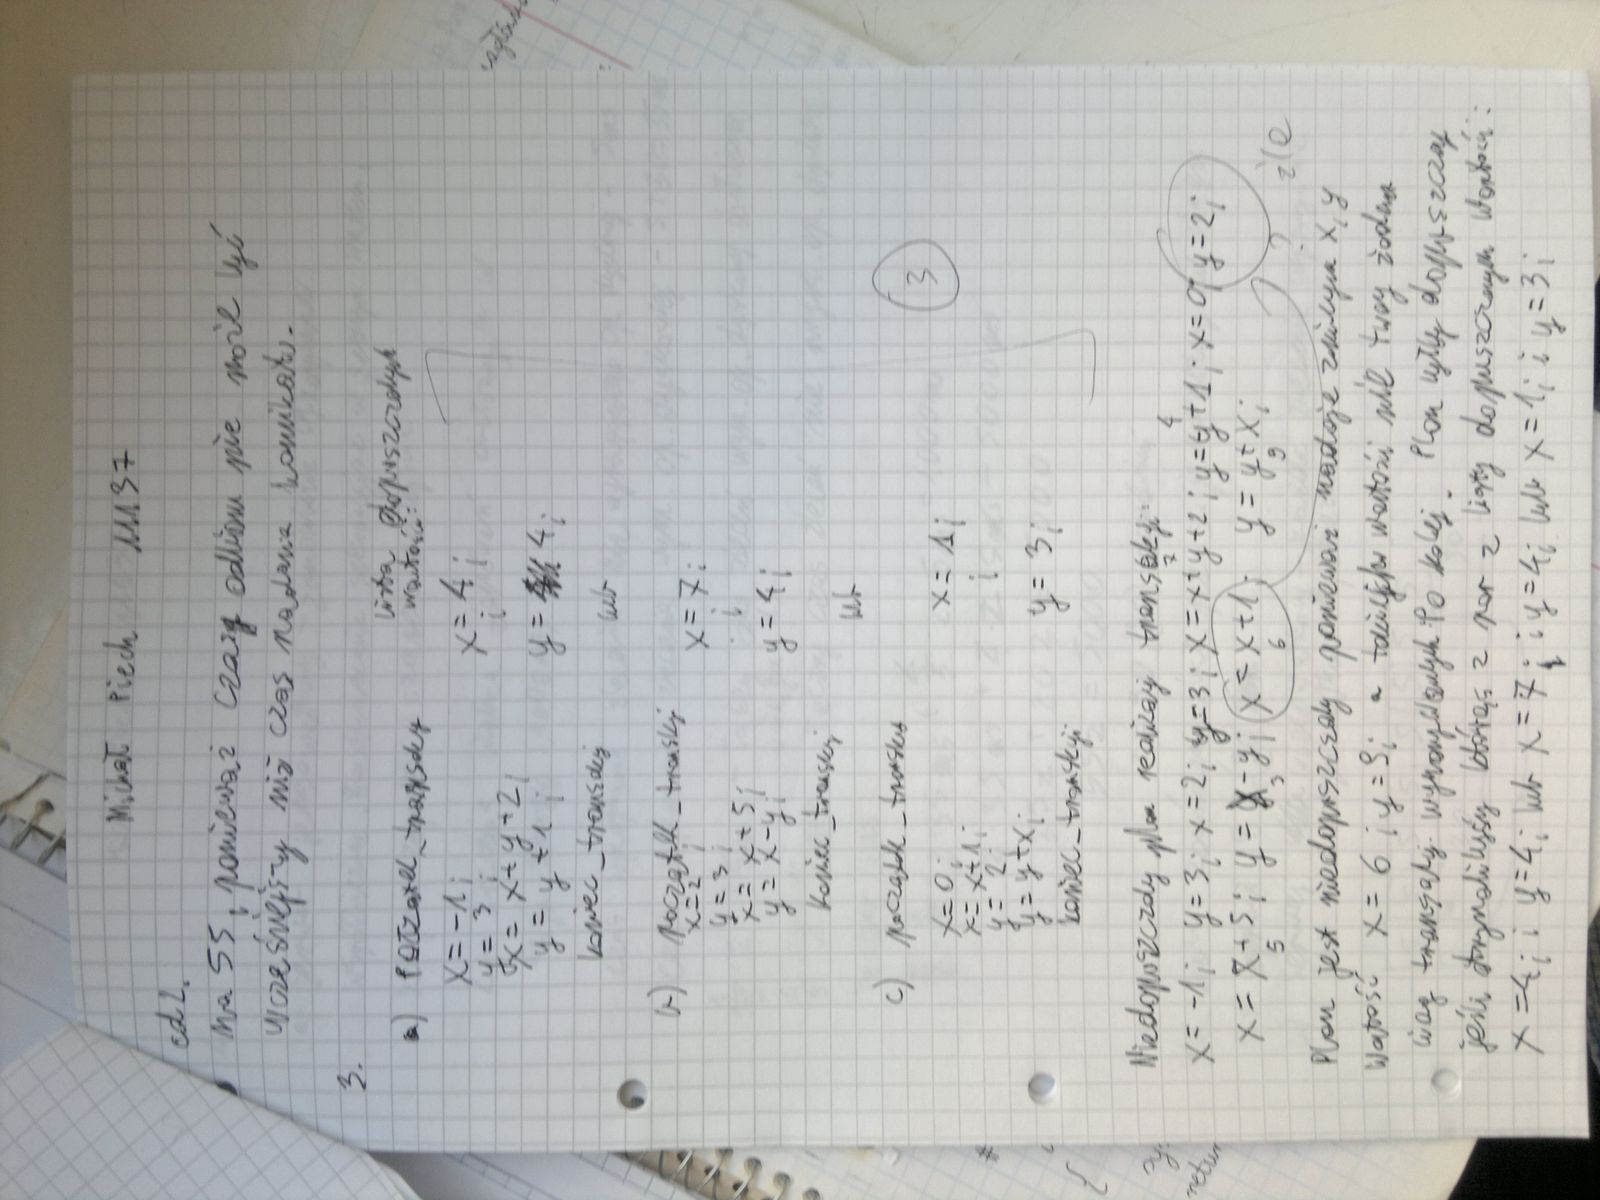 Michał Piech 111137
cd 2.
na 55, ponieważ czas odbioru nie może być
wcześniejszy niż czas nadania komunikatu.
3.
lista dopuszczalnych
wartości:
a) początek_transakcji
x = -1;
y = 3;
x = x + y + 2;
y = y + 1;
koniec_transakcji
x = 4;
i
y = 4;
lub
b) początek_transakcji
x = 2;
y = 3;
x = x + 5;
y = x - y;
koniec_transakcji
x = 7;
i
y = 4;
lub
c) początek_transakcji
x = 0;
x = x + 1;
y = 2;
y = y + x;
koniec_transakcji
x = 1;
i
y = 3;
3
Niedopuszczalny plan realizacji transakcji:
x = -1; y = 3; x = 2; y = 3; x = x + y + 2; y = y + 1; x = 0; y = 2;
x = x + 5; y = x - y; x = x + 1; y = y + x;
5 3 6 9
? źle
Plan jest niedopuszczalny ponieważ nadaje zmiennym x i y
wartość x = 6 i y = 9; a takiej wartości nie tworzy żadna
transakcji wykonywanych po kolei. Plan byłby dopuszczalny
jeśli otrzymalibyśmy którąś z par z listy dopuszczalnych wartości:
x = 4; i y = 4; lub x = 7; i y = 4; lub x = 1; i y = 3;